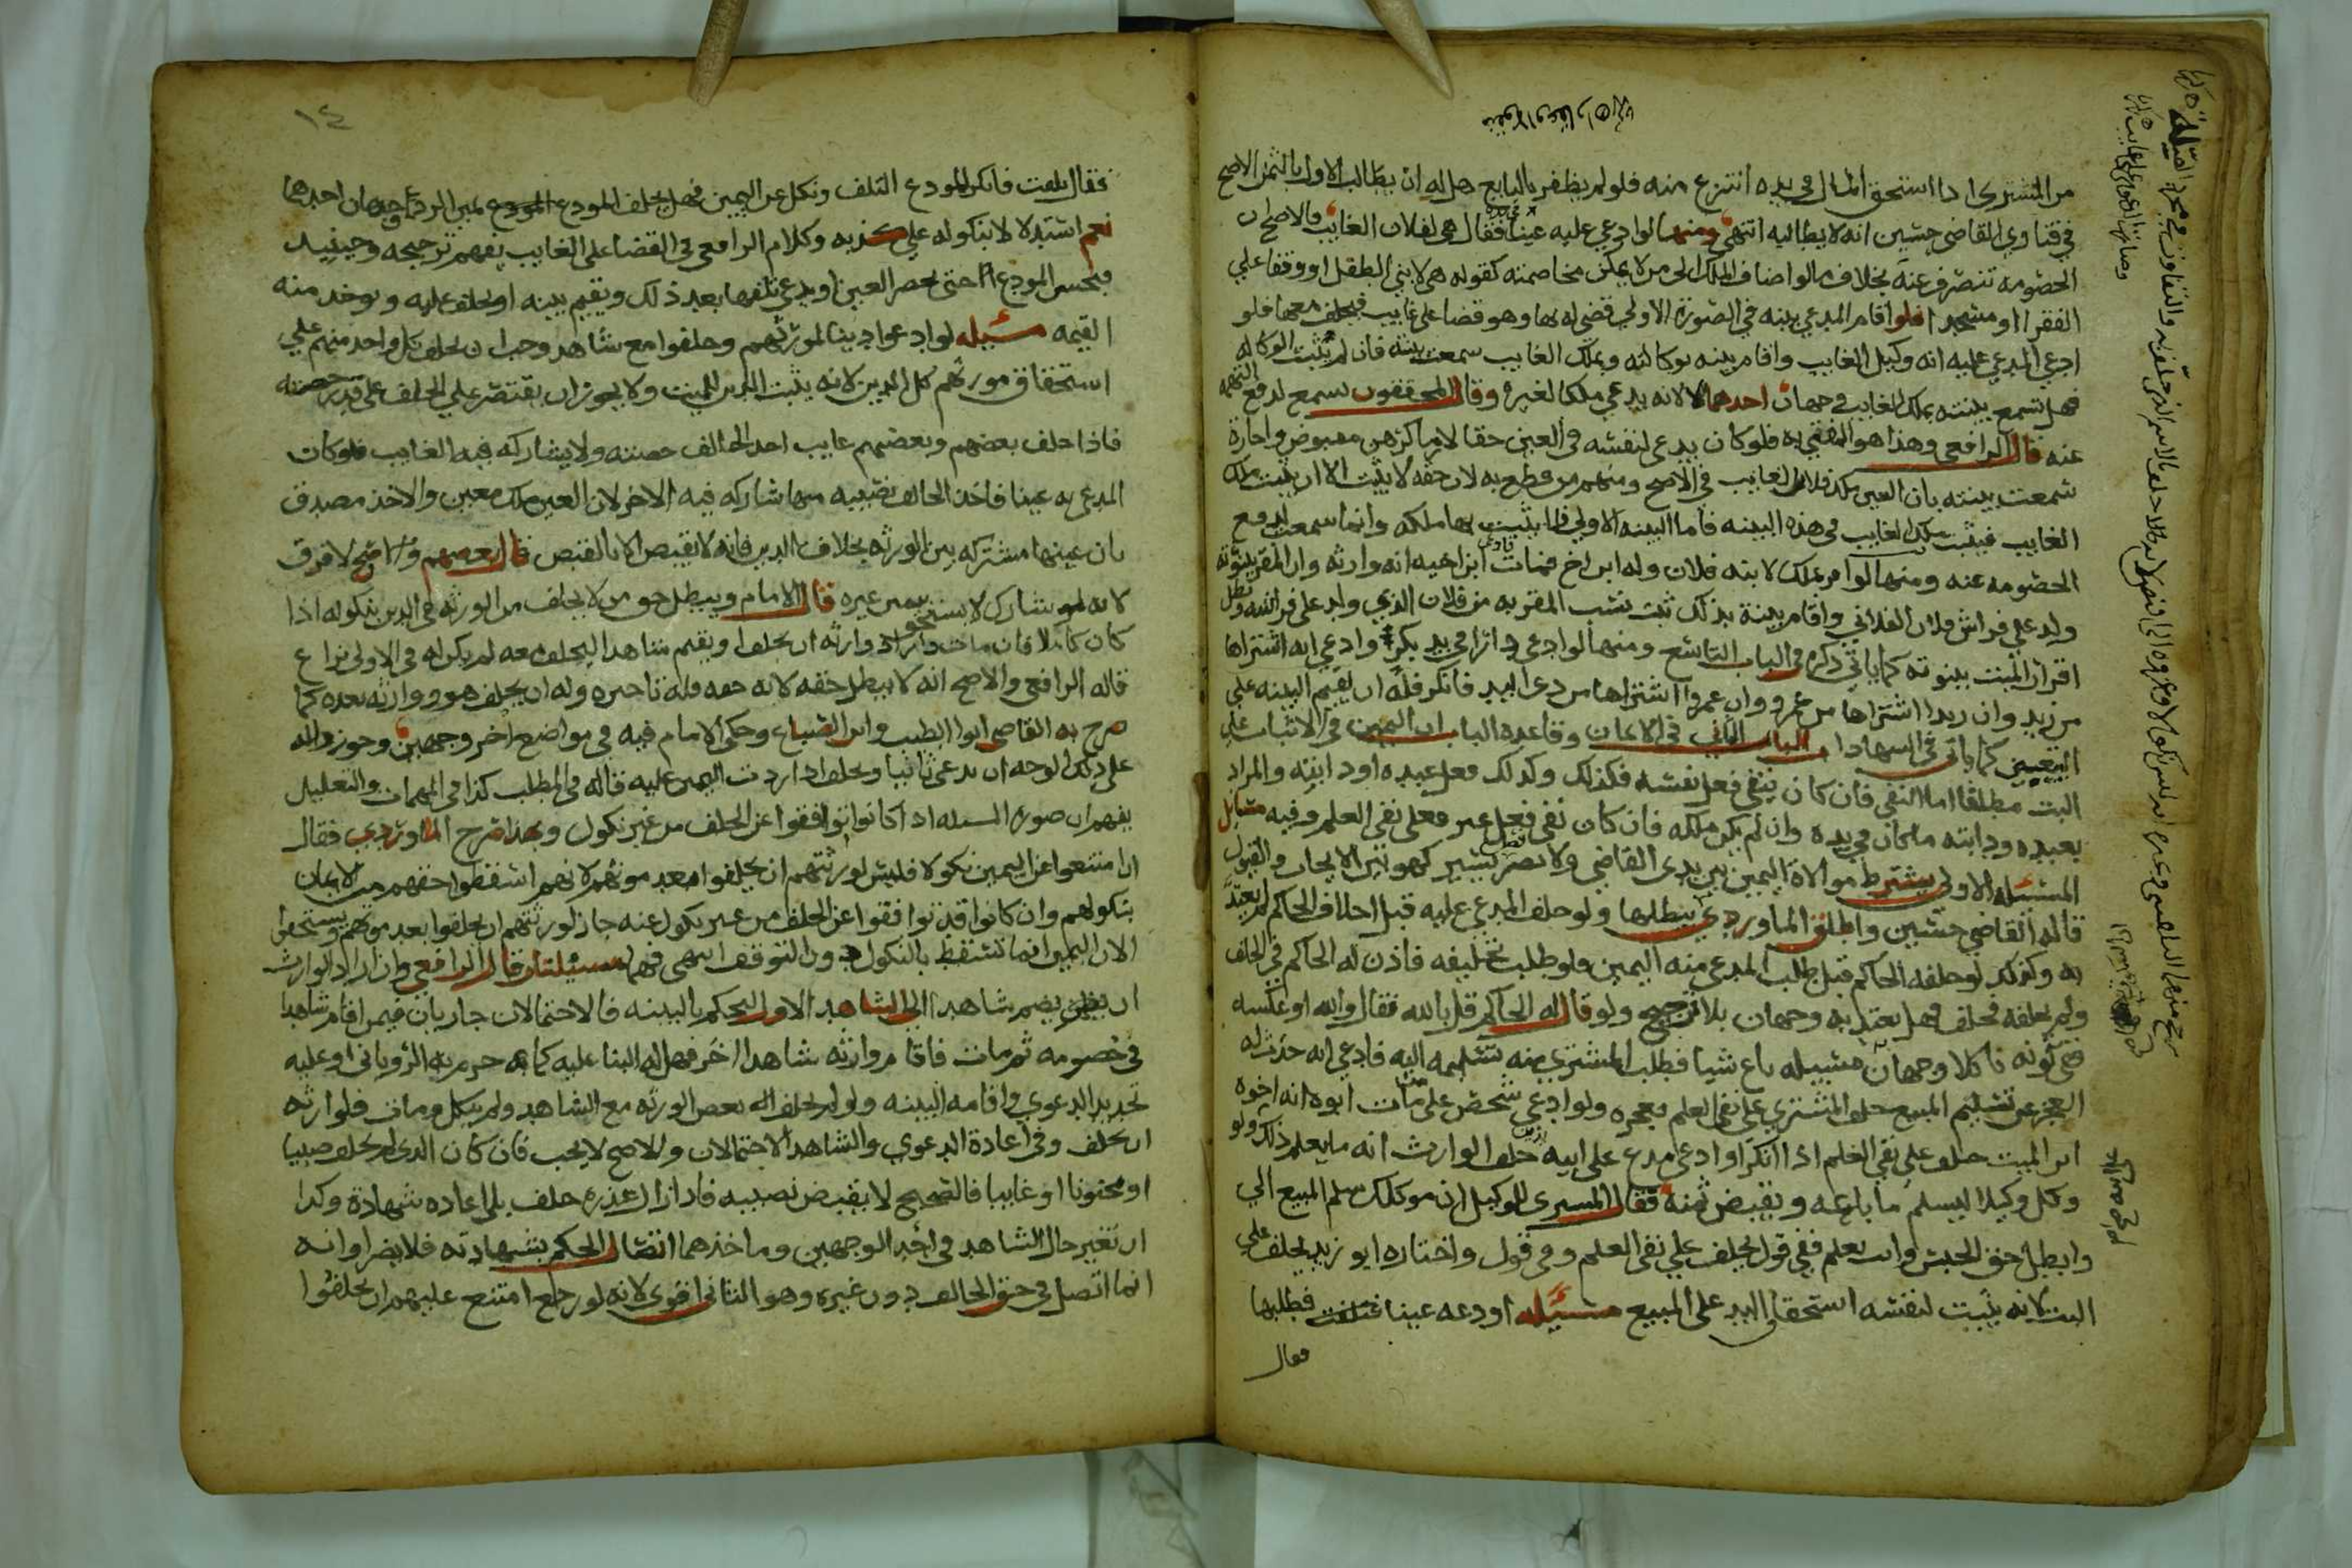 من المشتري اذا استحق المال في يده انتزع منه فلو لم يظفر بالبايع هل له ان يطالب الاول بالثمن الاصح
في فتاوي القاضي حسين انه لا يطالبه انتهي ومنها لو ادعي عليه عينا فقال هي لفلان الغايب فالاصح ان
الخصومه تنصرف عنه بخلاف ما لو اضاف الملك الى من لا يمكن مخاصمته كقوله هي لابني الطفل او وقفا علي
الفقرا او مسجد فلو اقام المدعي بينه في الصورة الاولي قضي له بها وهو قضا على غايب فيحلف معها فلو
ادعي المدعي عليه انه وكيل الغايب واقام بينه بوكالته وبملك الغايب سمعت بينته فان لم يثبت الوكاله
فهل تسمع بينته بملك الغايب وجهان احدهما لا لانه يدعي ملكا لغيره وقال المحققون تسمع لدفع التهمه
عنه قال الرافعي وهذا هو المفتي به فلو كان يدعي لنفسه في العين حقا لازما كرهن مقبوض واجارة
سمعت بينته بان العين ملك فلان الغايب في الاصح ومنهم من قطع به لان حقه لا يثبت الا ان يثبت ملك
الغايب فيثبت ملك الغايب في هذه البينه فاما البينه الاولي فلا يثبت بها ملكه وانما سمعت لدفع
الخصومه عنه ومنها لو اقر بملك لابنه فلان وله ابن اخ فمات فادعي ابن اخيه انه وارثه وان المقر ببنوته
ولد علي فراش فلان الفلاني واقام بينة بذلك ثبت نسب المقر به من فلان الذي ولد على فراشه وبطل
اقرار الميت ببنوته كما ياتي ذكره في الباب التاسع ومنها لو ادعي دارا في يد بكر وادعي انه اشتراها
من زيد وان زيدا اشتراها من عمرو وان عمروا اشتراها من ذي اليد فانكر فله ان يقيم البينه علي
التعيين كما ياتي في الشهادا الباب الثاني في الايمان وقاعدة الباب ان اليمين في الاثبات علي
البت مطلقا اما النفي فان كان ينفي فعل نفسه فكذلك وكذلك فعل عبده او دابته والمراد
بعبده ودابته ما كان في يده وان لم يكن ملكه فان كان نفي فعل غيره فعلي نفي العلم وفيه مسايل
المسئله الاولى يشترط موالاة اليمين بين يدى القاضي ولا يضر فصل يسير كهو بين الايجاب والقبول
قاله القاضي حسين واطلق الماوردي يبطلها ولو حلف المدعي عليه قبل احلاف الحاكم لم يعتد
به وكذلك لو حلفه الحاكم قبل طلب المدعي منه اليمين ولو طلب تحليفه فاذن له الحاكم في الحلف
ولم يحلفه فحلف فهل يعتد به وجهان بلا ترجيح ولو قال له الحاكم قل بالله فقال والله او عكسه
ففي كونه ناكلا وجهان مسئله باع شيا فطلب المشتري منه تسليمه اليه فادعي انه حدث له
العجز عن تسليم المبيع حلف المشتري على نفي العلم بعجزه ولو ادعي شخص على من مات ابوه انه اخوه
ابن الميت حلف على نفي العلم اذا انكر او ادعى مدع على ابيه دين حلف الوارث انه ما يعلم ذلك ولو
وكل وكيلا ليسلم ما باعه ويقبض ثمنه فقال المشتري للوكيل ان موكلك سلم المبيع الي
وابطل حق الحبس وانت تعلم ففي قول يحلف على نفي العلم وفي قول واختاره ابو زيد يحلف علي
البت لانه يثبت لنفسه استحقاق اليد على المبيع مسئله اودعه عينا فتلفت فطلبها
فقال
١٤
فقال تلفت فانكر المودع التلف ونكل عن اليمين فهل يحلف المودع المودع يمين الرد وجهان احدهما
نعم استدلالا بنكوله علي كذبه وكلام الرافعي في القضا على الغايب يفهم ترجيحه وحينيد
فيحبس المودع حتى يحضر العين او يدعي تلفها بعد ذلك ويقيم بينه او يحلف عليه ويوخذ منه
القيمه مسئله لو ادعوا دينا لمورثهم وحلفوا مع شاهد وجب ان يحلف كل واحد منهم علي
استحقاق مورثهم كل الدين لانه يثبت الدين للميت ولا يجوز ان يقتصر علي الحلف على قدر حصته
فاذا حلف بعضهم وبعضهم غايب اخد الحالف حصته ولا يشاركه فيه الغايب فلو كان
المدعى به عينا فاخذ الحالف نصيبه منها شاركه فيه الاخر لان العين ملك معين والاخذ مصدق
بان عينها مشتركه بين الورثه بخلاف الدين فانه لا يقبض الا بالقبض قال بعضهم والاصح لا فرق
لانه لو شارك لاستحق بيمين غيره قال الامام ويبطل حق من لا يحلف من الورثه في الدين بنكوله اذا
كان كاملا فان مات واراد وارثه ان يحلف او يقيم شاهدا ليحلف معه لم يكن له في الاولى نزاع
قاله الرافعي والاصح انه لا يبطل حقه لانه حقه فله تاخيره وله ان يحلف هو ووارثه بعده كما
صرح به القاضي ابو الطيب وابن الصباع وحكى الامام فيه في مواضع اخر وجهين وجوز والده
على ذلك الوجه ان يدعي ثانيا ويحلف اذا ردت اليمين عليه قاله في المطلب كذا في المهمات والتعليل
يفهم ان صوره المسئله اذا كانوا توافقوا عن الحلف من غير نكول وبهذا صرح الماوردي فقال
ان امتنعوا عن اليمين نكولا فليس لورثتهم ان يحلفوا بعد موتهم لانهم اسقطوا حقهم من الايمان
بنكولهم وان كانوا قد توافقوا عن الحلف من غير نكول عنه جاز لورثتهم ان يحلفوا بعد موتهم ويستحقوا
الان اليمين انما تسقط بالنكول دون التوقف انتهى فيهما مسئلتان قال الرافعي وان اراد الوارث
ان يضم شاهدا الى الشاهد الاول ليحكم بالبينه فالاحتمالان جاريان فيمن اقام شاهدا
في خصومه ثم مات فاقام وارثه شاهدا اخر فهل له البنا عليه كما به جزم به الرويانى او عليه
تجديد الدعوي واقامه البينه ولو لم يحلف بعض الورثه مع الشاهد ولم ينكل ومات فلوارثه
ان يحلف وفي اعادة الدعوي والشاهد الاحتمالان والاصح لا يجب فان كان الذي لم يحلف صبيا
او مجنونا او غايبا فالصحيح لا يقبض نصيبه فاذا زال عذره حلف بلا اعاده شهادة وكدا
ان تغير حال الشاهد في احد الوجهين وماخذهما اتصال الحكم بشهادته فلا يضر او انه
انما اتصل في حق الحالف دون غيره وهو الثاني اقوى لانه لو رجع امتنع عليهم ان يحلفوا